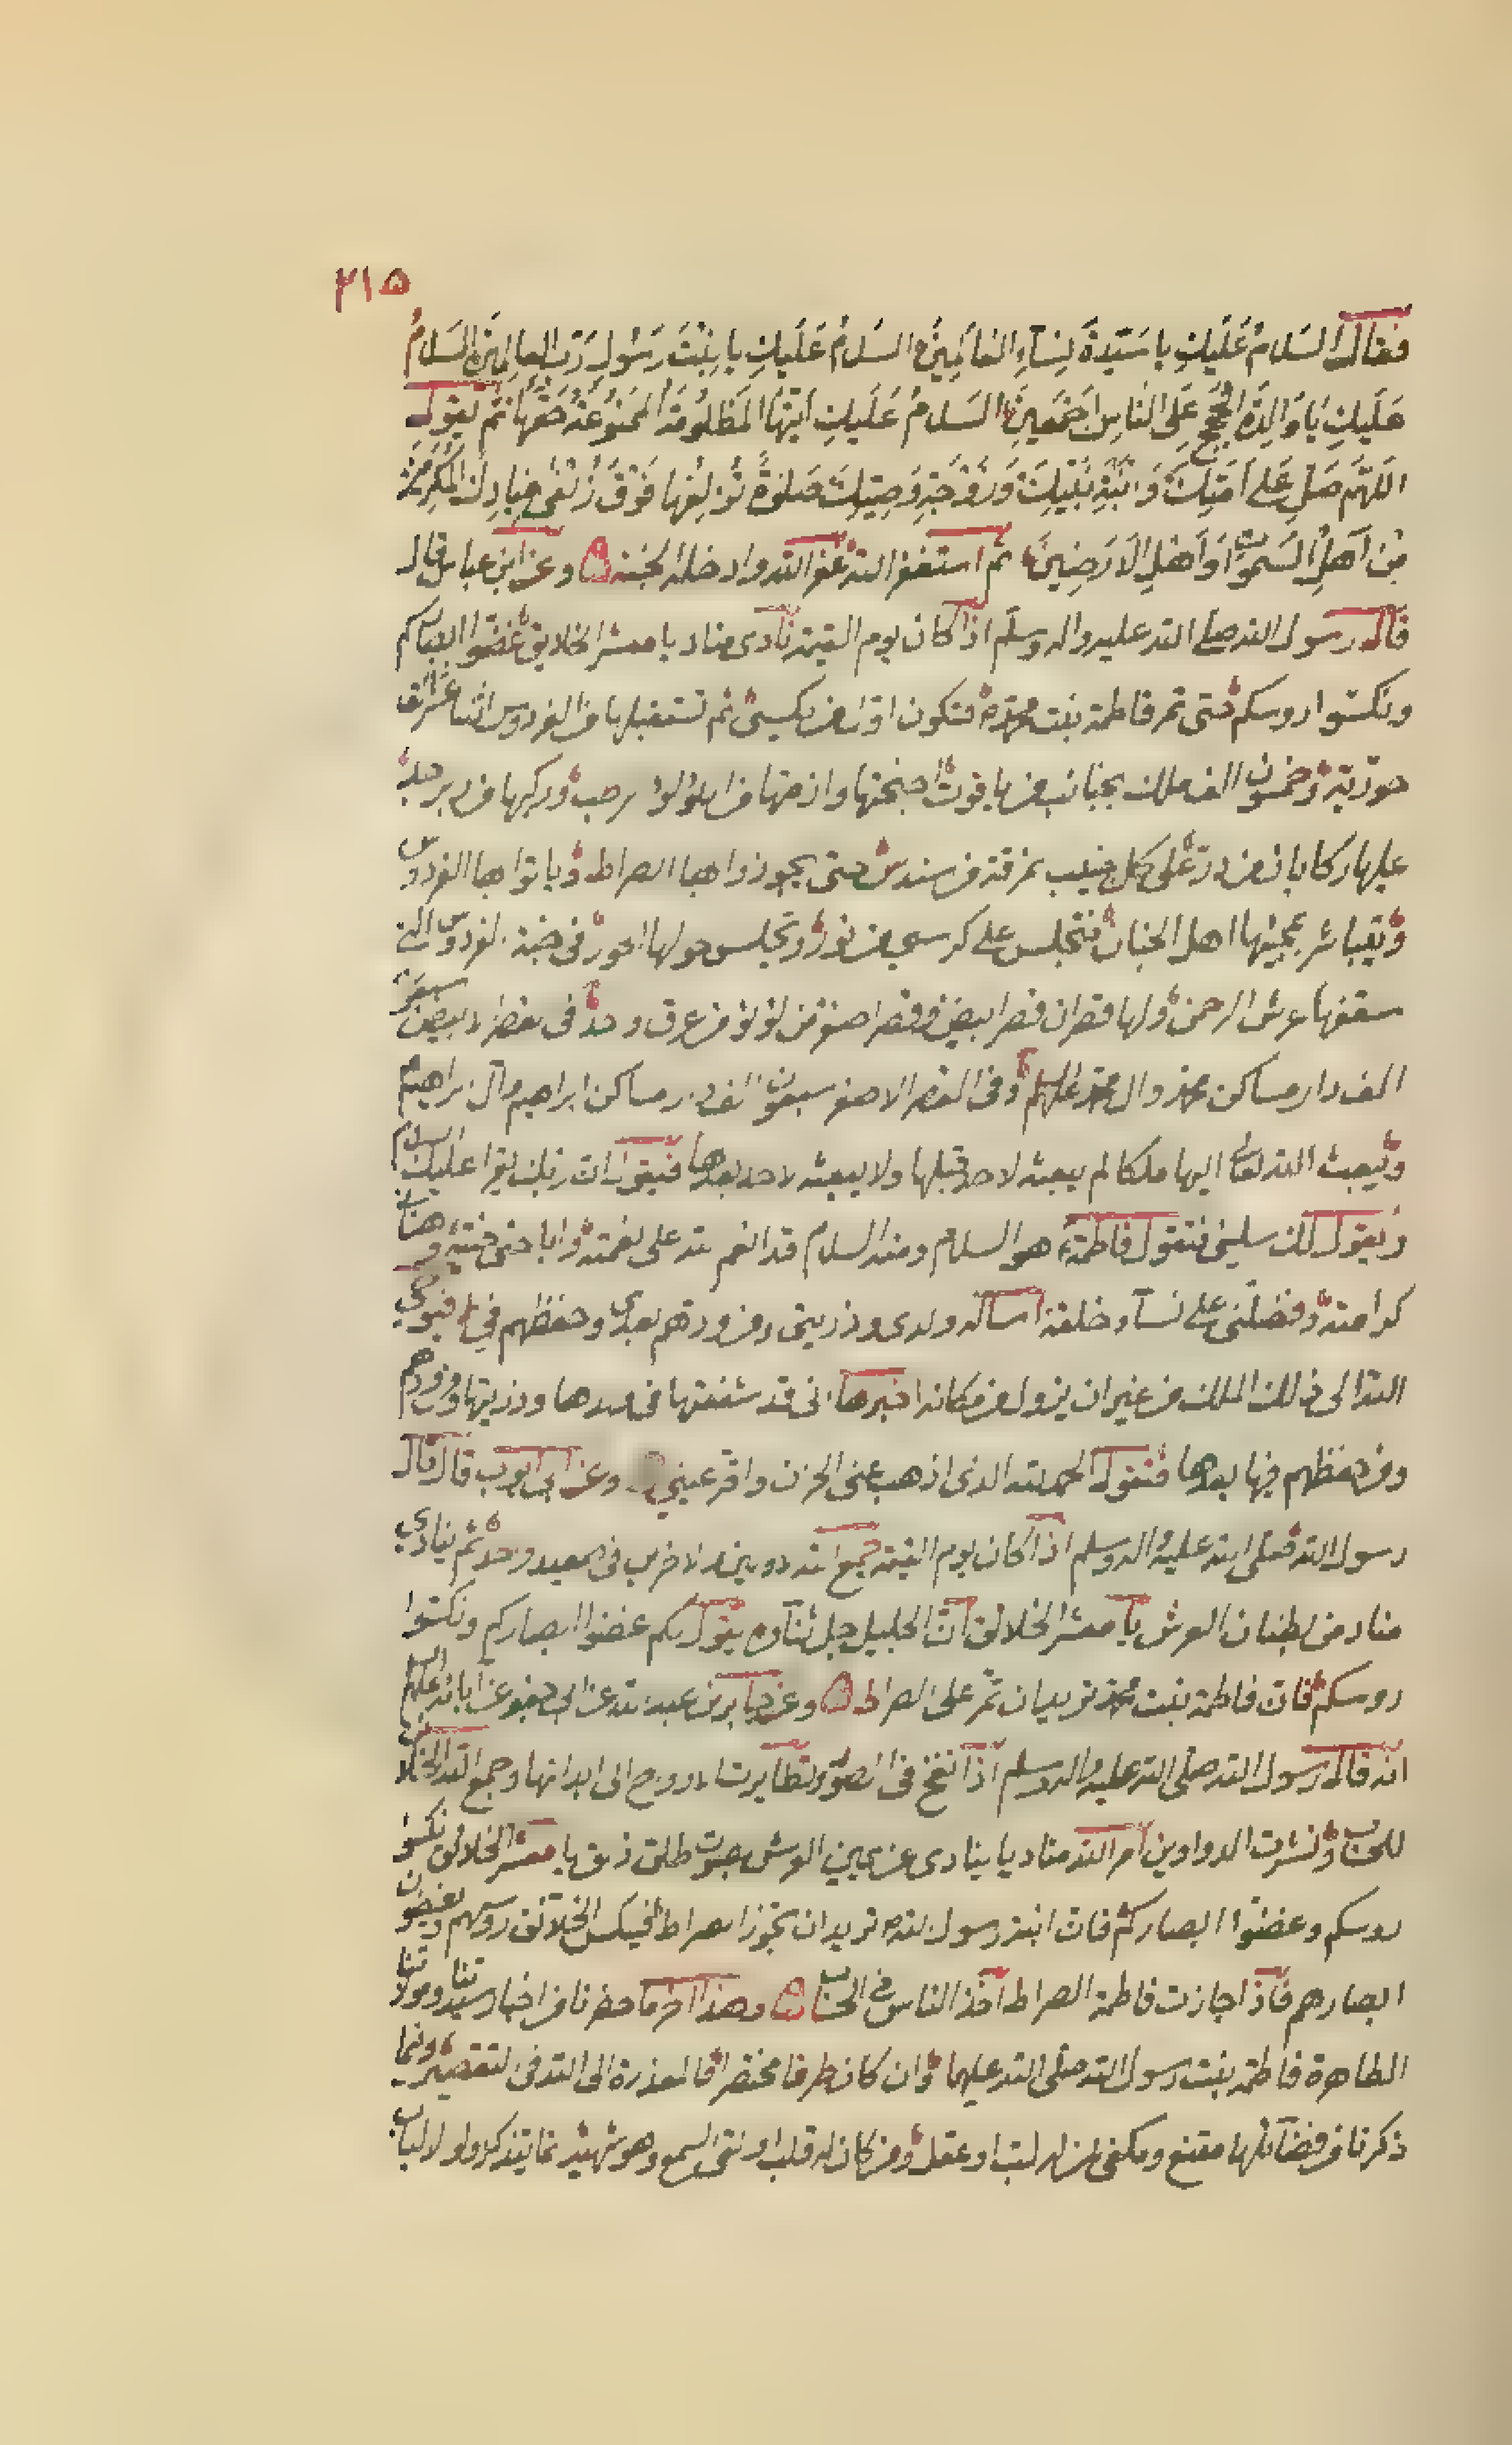 ٢١٥
فقال السَلامُ عَلَيكِ يا سَيّدةَ نِسآءِ العٰالَمِينَ السَلامُ عَلَيكِ يا بِنْتَ رَسُولِ رَبّ العٰالَمِينَ السَلامُ
عَلَيكِ يٰا وٰالِدَةَ الحُجَجِ عَلَى النٰاسِ اَجمَعينَ السَلامُ عَلَيكِ اَيّتُهَا المَظلُومَة المَمنُوعَةُ حَقّهٰا ثم يقول
اللّهُمَّ صَلِّ عَلى اَمَتِكَ وَابْنَةِ نَبيّكَ وَزَوْجَةِ وَصِيّ نَبيّكَ صَلوٰةً تُزلِفُها فَوْقَ زُلْفىٰ عِبادِكَ المُكرَمينَ
مِنْ اَهلِ السَمٰوٰاتِ وَاَهْلِ الاَرَضِينَ ثم استغفر الله غفر الله له وادخله الجنة وعن ابن عباس قال
قال رسول الله صلى الله عليه واله وسلم اذا كان يوم القيمة نادى مناد يا معشر الخلايق غضوا ابصاركم
ونكسوا روسكم حتى تمر فاطمة بنت محمد فتكون اول من يكسى ثم تستقبلها من الفردوس اثنا عشر الف
حورية وخمسون الف ملك بنجائب من ياقوت اجنحتها وازمتها من اللؤلؤ الرطب وركبها من زبرجد
عليها ركايا من در على كل نجيب نمرقة من سندس حتى يجوزوا بها الصراط وياتوا بها الفردوس
ويتباشر بمجيئها اهل الجنان فتجلس على كرسي من نور وتجلس حولها الحور في جنة الفردوس التي
سقفها عرش الرحمن ولها قصران قصر ابيض وقصر اصفر من لؤلؤ من عرق واحد في القصر الابيض سبعون
الف دار مساكن محمد وال محمد عليهم السلام وفى القصر الاصفر سبعون الف دار مساكن ابراهيم وآل ابراهيم
ويبعث الله تعالى اليها ملكا لم يبعثه لاحد قبلها ولا يبعثه لاحد بعدها فيقول ان ربك يقرا عليك السلام
ويقول لك سليني فتقول فاطمة هو السلام ومنه السلام قد اتم الله على نعمته واباحنى جنته وهنانى
كرامته وفضلنى على نسآء خلقه اساله ولدى وذريتى ومن ودهم بعدى وحفظهم فيّ فيوحي
الله الى ذلك الملك من غير ان يزول من مكانه اخبرها انى قد شفعتها فى ولدها وذريتها ومن ودهم
ومن حفظهم فيها بعدها فتقول الحمد لله الذى اذهب عنى الحزن واقر عينى وعن ابى ايوب قال قال
رسول الله صلى الله عليه واله وسلم اذا كان يوم القيمة جمع الله الاولين والاخرين فى صعيد واحد ثم ينادي
مناد من بطنان العرش يا معشر الخلائق ان الجليل جل ثنآؤه يقول لكم غضوا ابصاركم ونكسوا
روسكم فان فاطمة بنت محمد تريد ان تمر على الصراط وعن جابر بن عبد الله عن ابى جعفر عن ابائه عليهم السلام
انه قال رسول الله صلى الله عليه واله وسلم اذا نفخ فى الصور وتطايرت الارواح الى ابدانها وجمع الله الخلائق
للحساب ونشرت الدواوين امر الله مناديا ينادى عن يمين العرش بصوت طلق ذلق يا معشر الخلائق نكسوا
روسكم وغضوا ابصاركم فان ابنة رسول الله تريد ان تجوز الصراط فينكس الخلائق روسهم ويغضون
ابصارهم فاذا جازت فاطمة الصراط اخذ الناس فى الحساب وهذا اخر ما حضرنا من اخبار سيدتنا ومولاتنا
الطاهرة فاطمة بنت رسول الله صلى الله عليهما وان كان طرفا مختصرا فالمعذرة الى الله فى التقصير وفيما
ذكرنا من فضآئلها مقنع ومكفى لمن له لب او عقل ومن كان له قلب او القى السمع وهو شهيد انما يتذكر اولو الالباب